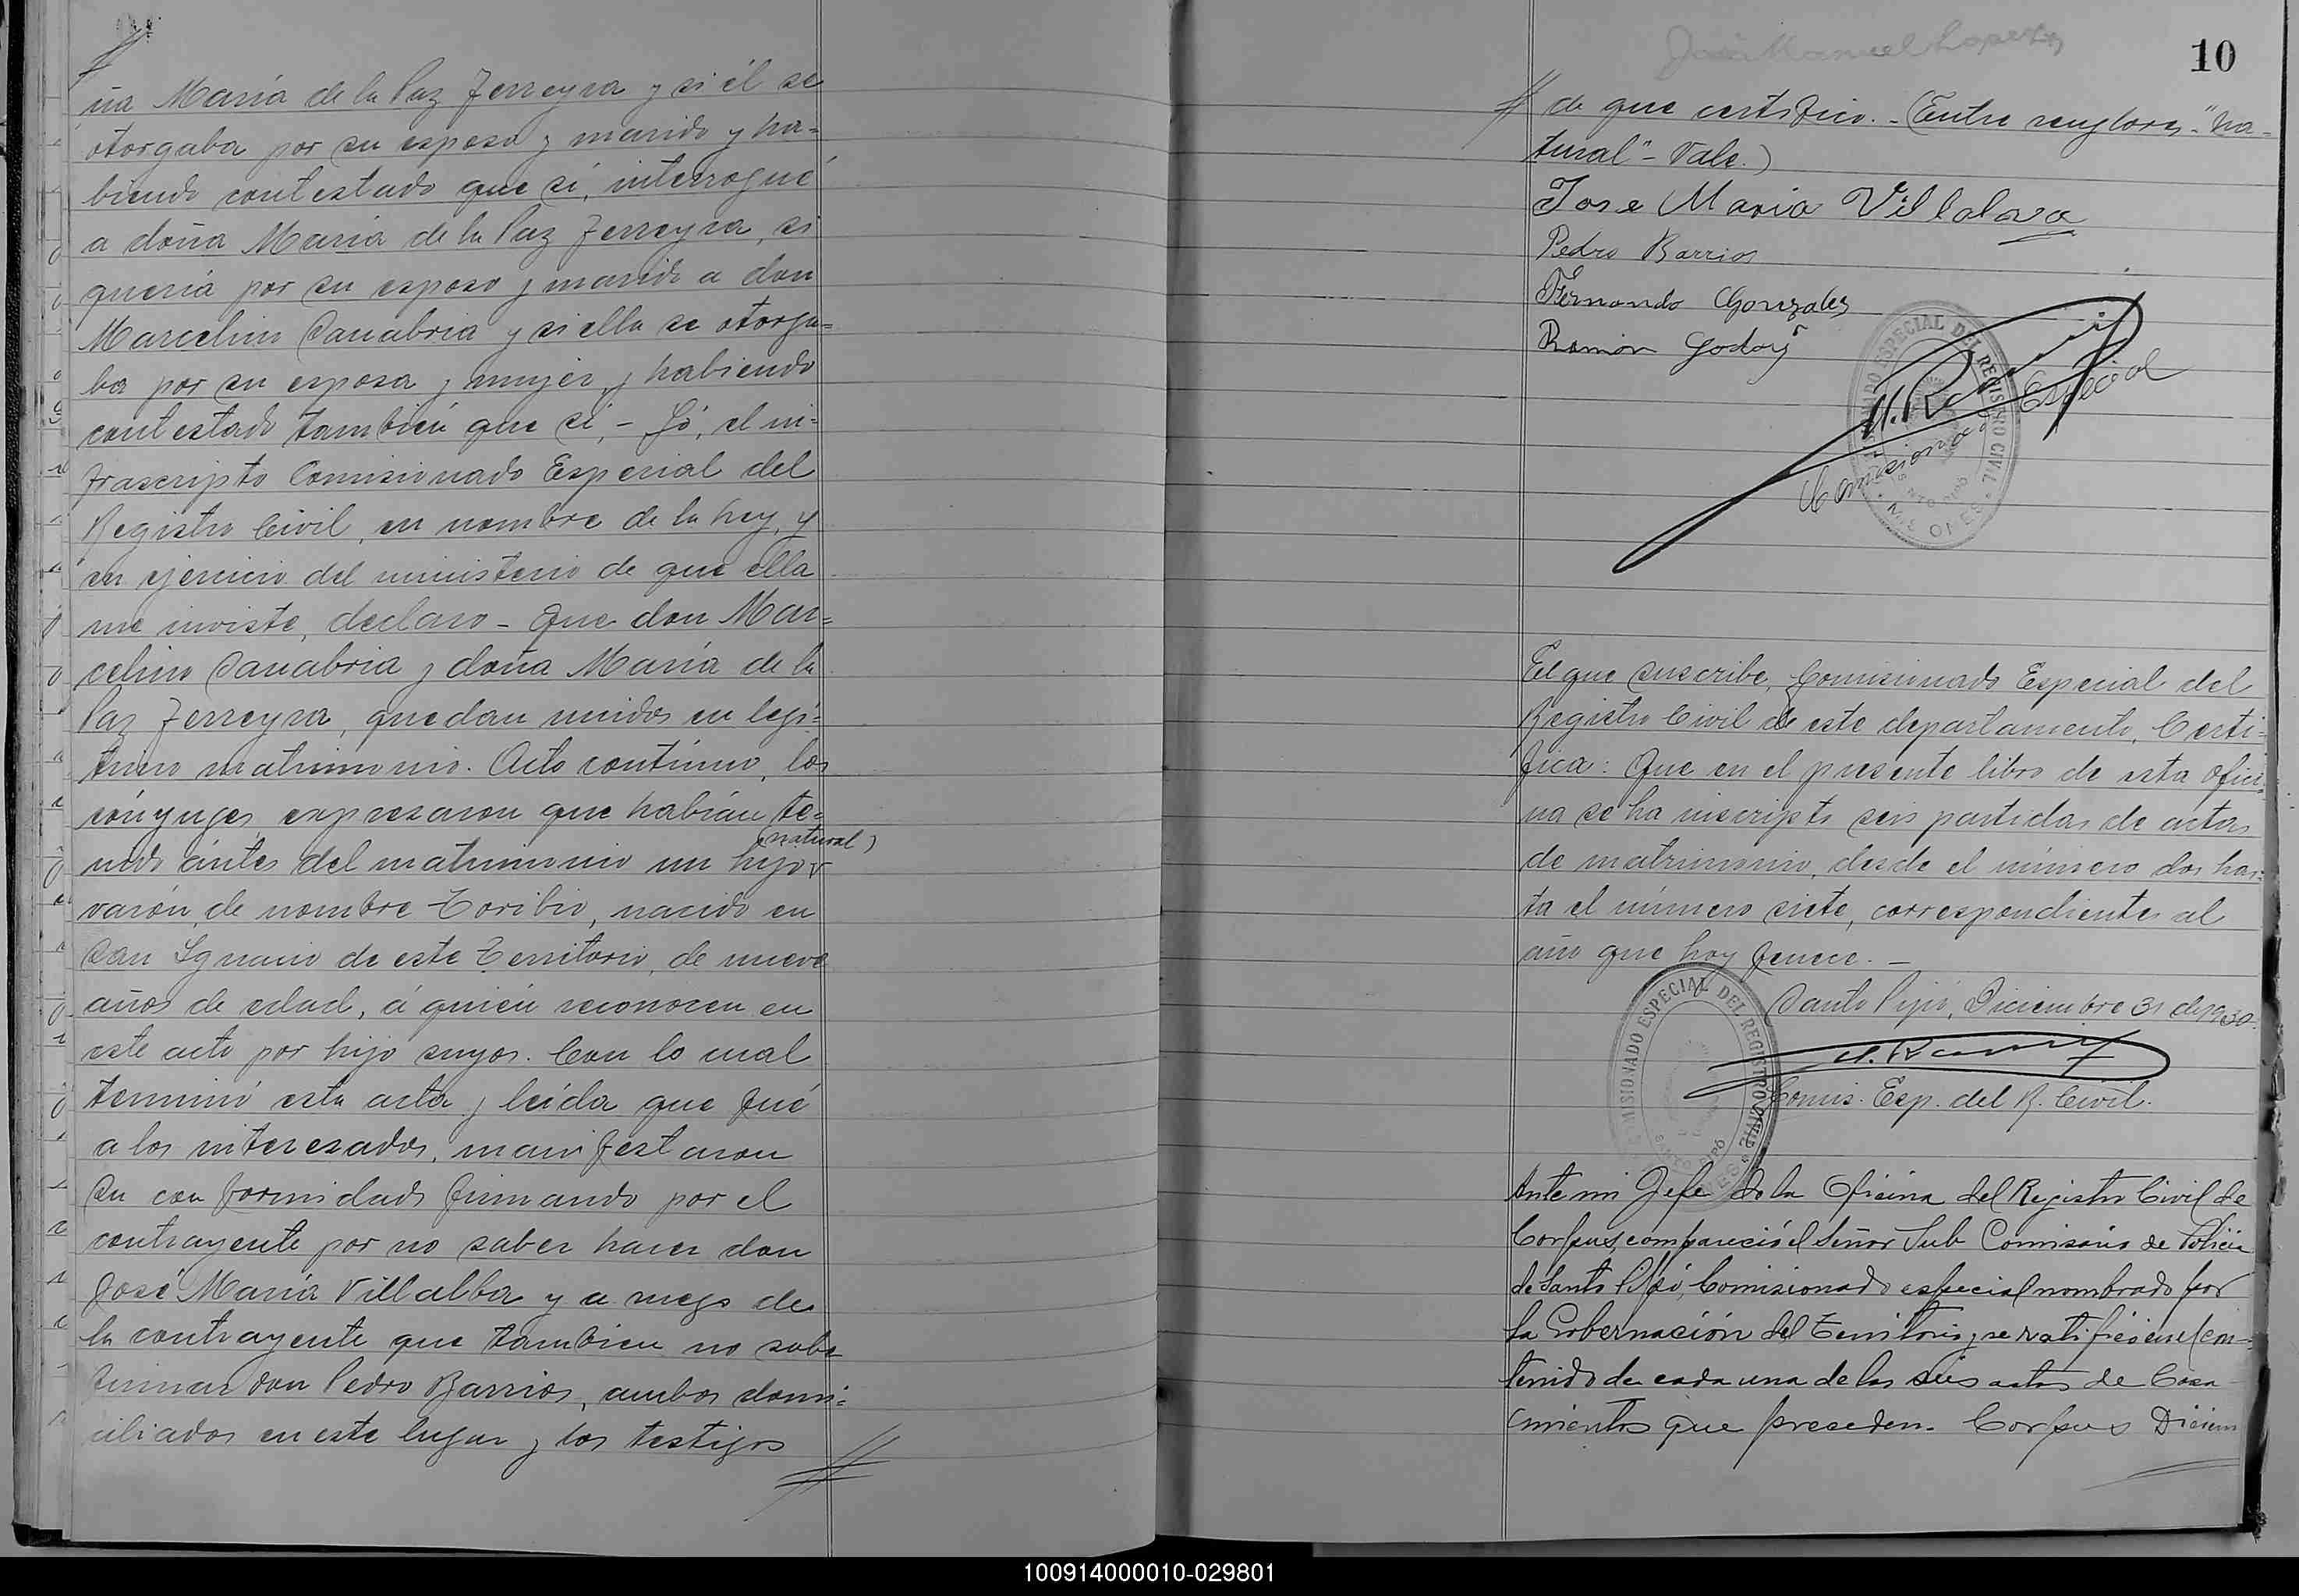 ña María de la Paz Ferreyra y si él se
otorgaba por su esposo y marido y ha=
biendo contestado que sí, interrogué
a doña María de la Paz Ferreyra, si
quería por su esposo y marido a don
Marcelino Sanabria y si ella se otorga=
ba por su esposa y mujer y habiendo
contestado también que sí, - Yó, el in=
frascripto Comisionado Especial del
Registro Civil, en nombre de la Ley, y
en ejercicio del ministerio de que ella
me inviste, declaro - Que don Mar=
celino Sanabria y doña María de la
Paz Ferreyra, quedan unidos en legí=
timo matrimonio. Acto contínuo, los
cónyuges expresaron que habían te=
(natural)
nido ántes del matrimonio un hijo
varón, de nombre Toribio, nacido en
San Ignacio de este Territorio, de nueve
años de edad, á quién reconocen en
este acto por hijo suyos. Con lo cual
terminó esta acta y leída que fué
a los interesados, manifestaron
su conformidad firmando por el
contrayente por no saber hacer don
José María Villalba y a ruego de
la contrayente que tambien no sabe
firmar don Pedro Barrios, ambos domi=
ciliados en este lugar y los testigos
10
de que certifico. - (Entre renglones - "na=
tural" - Vale.)
Jose Maria Villalava
Pedro Barrios
Fernando Gonzales
Ramón Godoy
COMISIONADO ESPECIAL DEL REGISTRO CIVIL
Comisionado Especial
El que suscribe, Comisionado Especial del
Registro Civil de este departamento, Certi=
fica: Que en el presente libro de esta Ofici=
na se ha inscripto seis partidas de actas
de matrimonio, desde el número dos has=
ta el número siete, correspondientes al
año que hoy fenece. -
Santo Pipó, Diciembre 31 de 1930.
COMISIONADO ESPECIAL DEL REGISTRO CIVIL
SANTO PIPÓ
Comis. Esp. del R. Civil.
Ante mi Jefe de la Oficina del Registro Civil de
Corpus, compareció el Señor Sub Comisario de Policia
de Santo Pipó, Comisionado especial nombrado por
la Gobernación del Territorio y se ratificó en el con=
tenido de cada una de las seis actas de Casa
mientos que preceden. Corpus Diciem
100914000010-029801